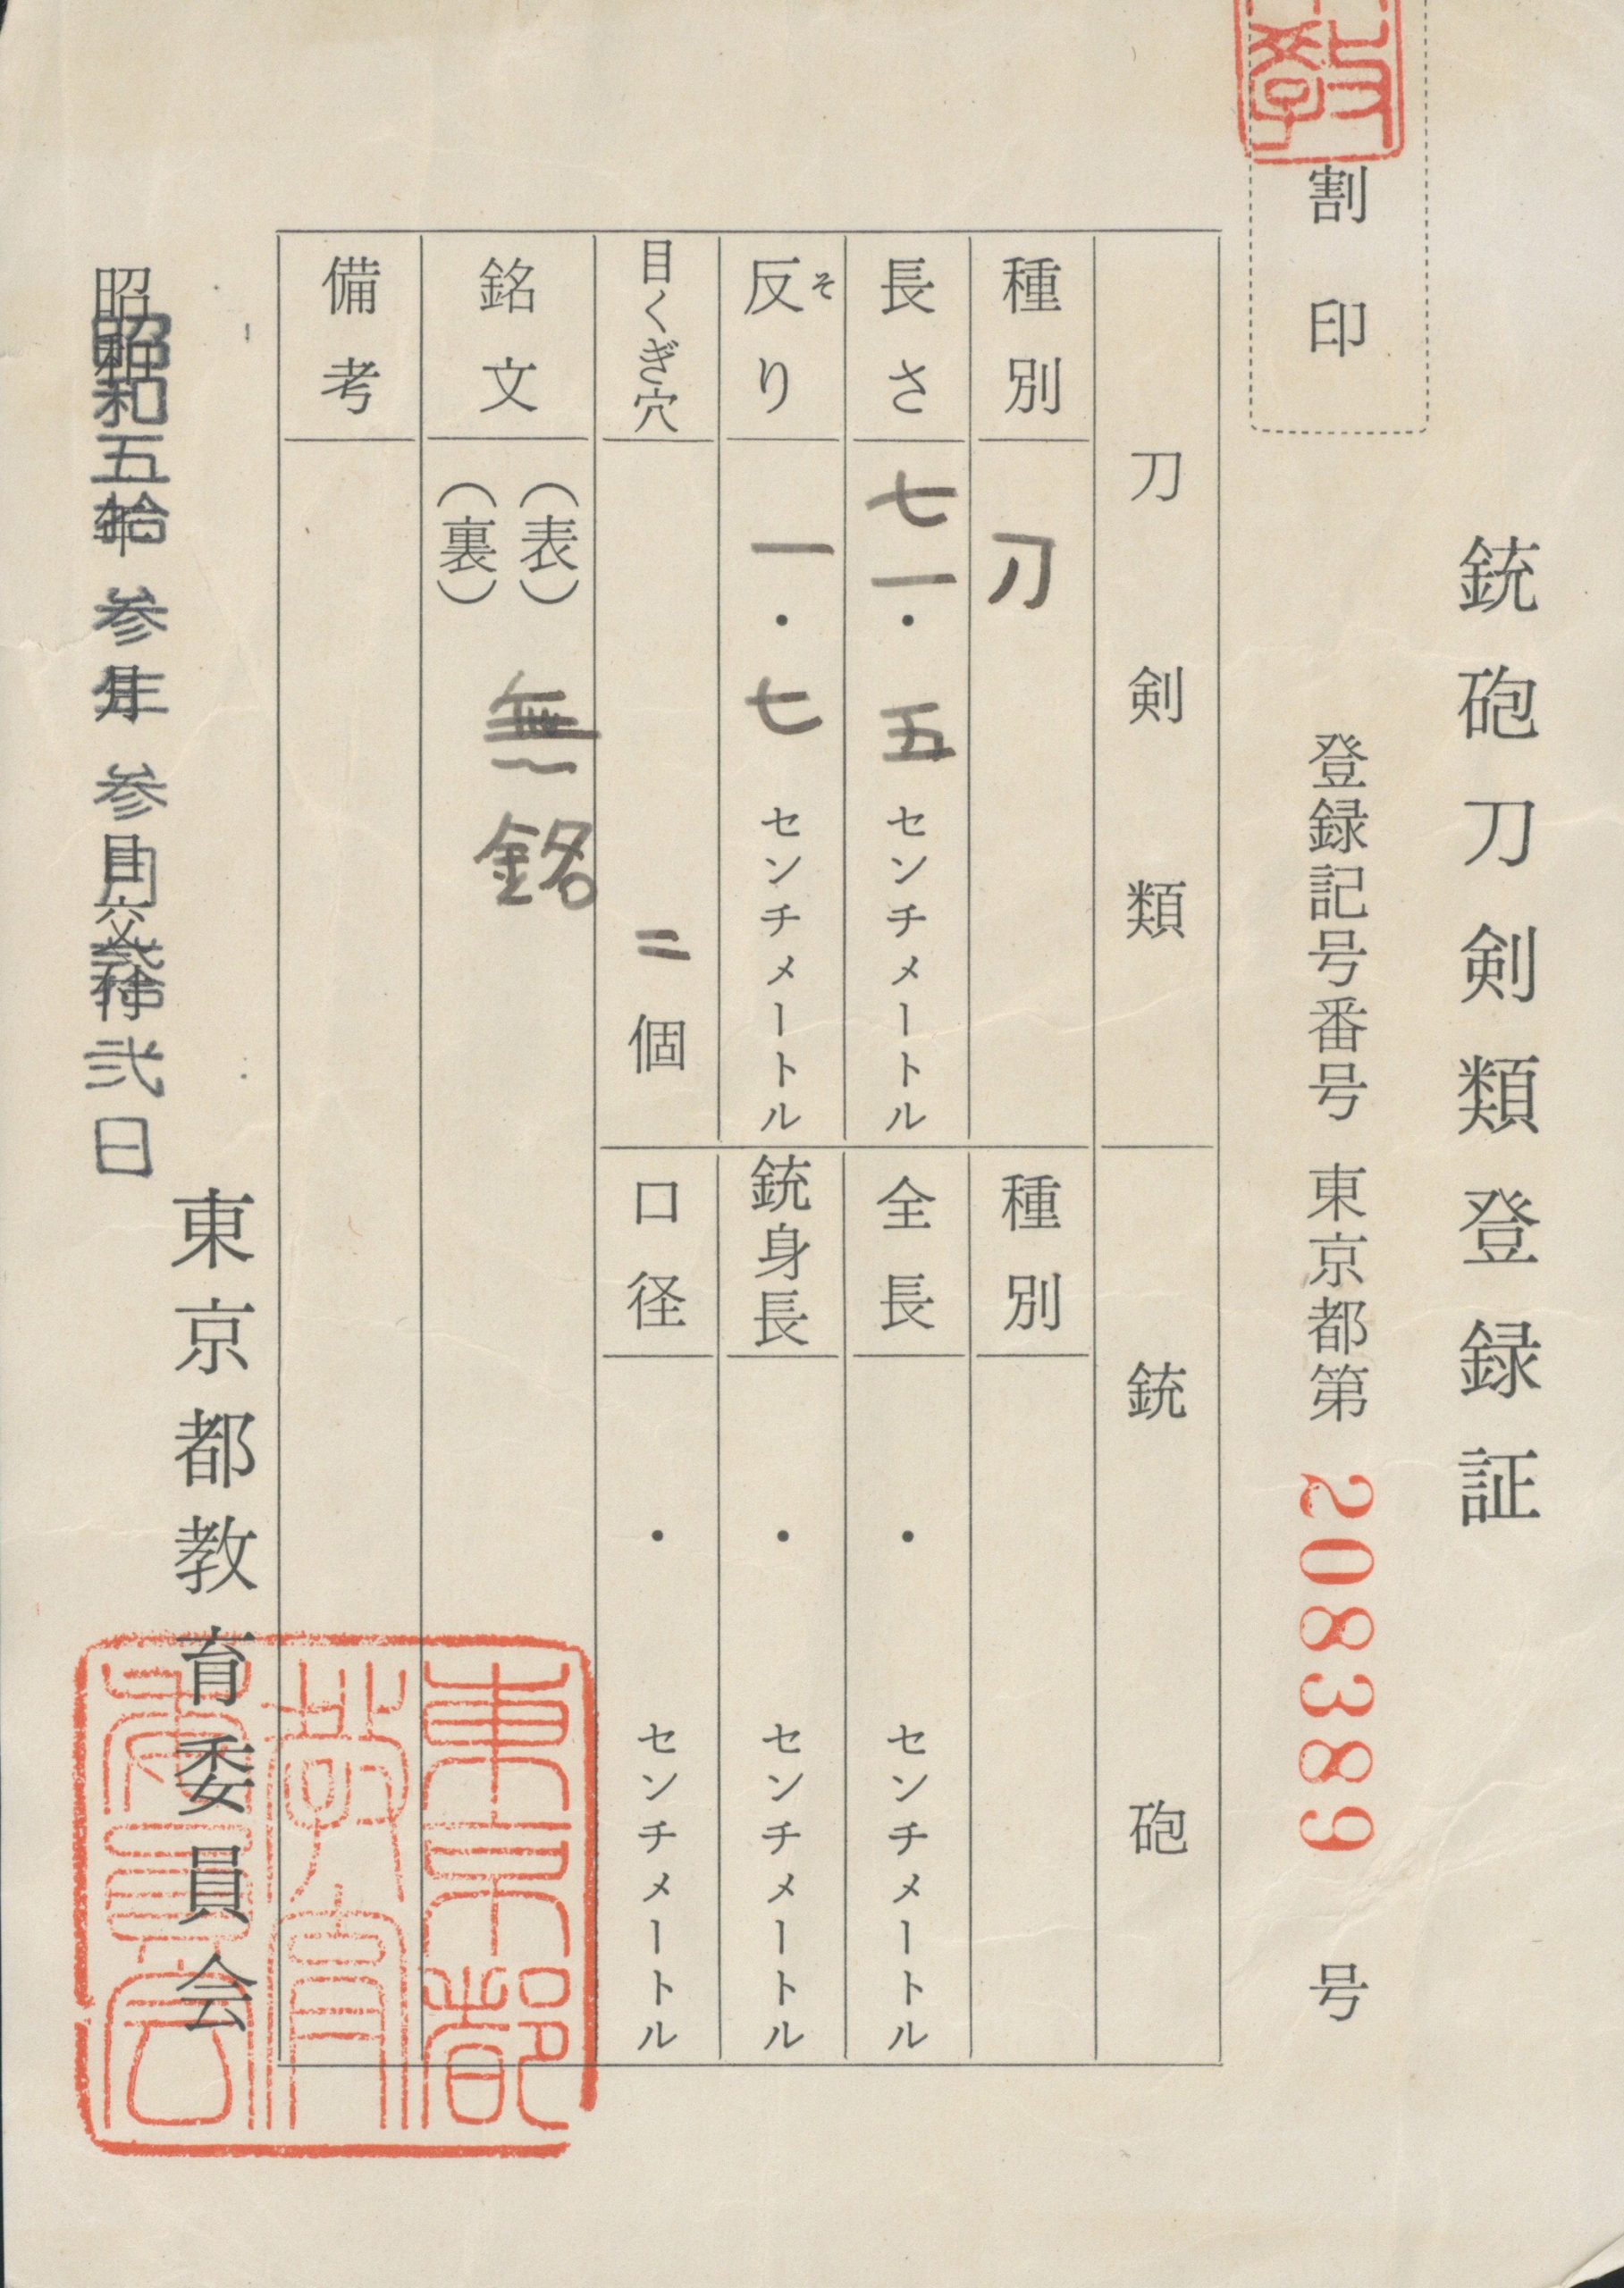 銃砲刀剣類登録証
割印
登録記号番号 東京都第 208389 号
刀剣類
銃砲
種別 刀
種別
長さ 七一・五 センチメートル
全長 ・ センチメートル
反り そ 一・七 センチメートル
銃身長 ・ センチメートル
目くぎ穴 二 個
口径 ・ センチメートル
銘文 (表) 無銘
(裏)
備考
昭和五拾参年参月弐日
東京都教育委員会
東京都
教育
委員会